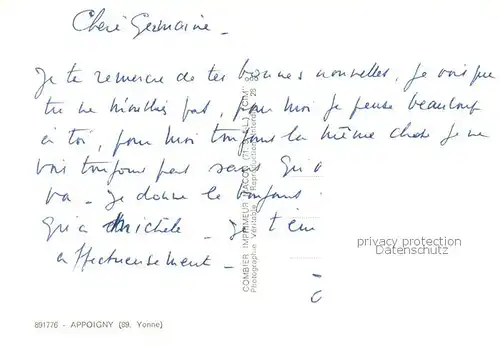 Chère Germaine -
Je te remercie de tes bonnes nouvelles, je vois que
tu ne m'oublies pas, pour moi je pense beaucoup
à toi, pour moi toujours la même chose je ne
vois toujours pas sans
va - je donne le bonjour
Michèle - Je t'em
affectueusement -
COMBIER IMPRIMEUR MACON (71-S.-L.) "CIM"
Photographie Véritable - Reproduction Interdite
privacy protection
Datenschutz
891776 - APPOIGNY (89. Yonne)